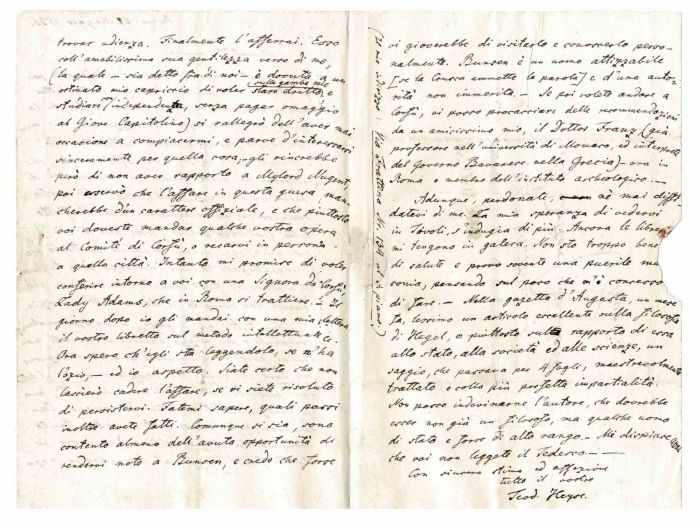 trovar udienza. Finalmente l'afferrai. Esso
coll'amabilissima sua gentilezza verso di me,
(la quale — sia detto fra di noi — è dovuta a un
ostinato mio capriccio di voler sulle gambe mie star dritto, e
studiare independente, senza pagar omaggio
al Giove Capitolino) si rallegrò dell'aver mai
occasione a compiacermi, e parve d'interessarsi
sinceramente per quella cosa, gli rincrebbe
però di non aver rapporto a Mylord Nugent,
poi osservò che l'affare in questa guisa man-
cherebbe d'un carattere offiziale, e che piuttosto
voi doveste mandar qualche vostra opera
al Comité di Corfù, o recarvi in persona
a quella città. Intanto mi promise di voler
conferire intorno a voi con una Signora da Corfù,
Lady Adams, che in Roma si trattiene. — Il
giorno dopo io gli mandai con una mia lettera
il vostro libretto sul metodo intellettuale
Ora spero ch'egli stia leggendolo, se n'ha
l'ozio, — ed io aspetto. Siate certo che non
lascierò cadere l'affare, se vi siete risoluto
di persistervi. Fatemi sapere, quali passi
inoltre avete fatti. Comunque si sia, sono
contento almeno dell'avuta opportunità di
rendervi noto a Bunsen, e credo che forse
Via Frattina No. 104 al piano.)
vi gioverebbe di visitarlo e conoscerlo perso-
nalmente. Bunsen è un uomo attizzabile
(se la Crusca ammette la parola) e d'una auto-
rità non immerita. — Se poi volete andare a
Corfù, vi posso procacciare delle recommendazioni
da un amicissimo mio, il Dottor Franz (già
professore nell'università di Monaco, ed interprete
del Governo Bavarese nella Grecia) — ora in
Roma e membro dell'instituto archeologico. —
Adunque, perdonate, nè mai diffi-
datevi di me. La mia speranza di vedervi
in Tivoli, s'indugia di più. Ancora le librerie
mi tengono in galera. Non sto troppo bene
di salute e provo sovente una puerile ma-
conia, pensando sul poco che m'è concesso
di fare. — Nella gazetta d'Augusta, un mese
fa, lessimo un articolo excellente sulla filosofia
di Hegel, o piuttosto sul rapporto di essa
allo stato, alla società ed alle scienze, un
saggio, che passava per 4 fogli, maestrevolmente
trattato e colla più perfetta impartialità.
Non posso indovinarne l'autore, che dovrebbe
esser non già un filosofo, ma qualche uomo
di stato e forse di alto rango. — Mi dispiace
che voi non leggete il Tedesco. —
Con sincera stima ed affezione
tutto il vostro
Teod. Heyse.